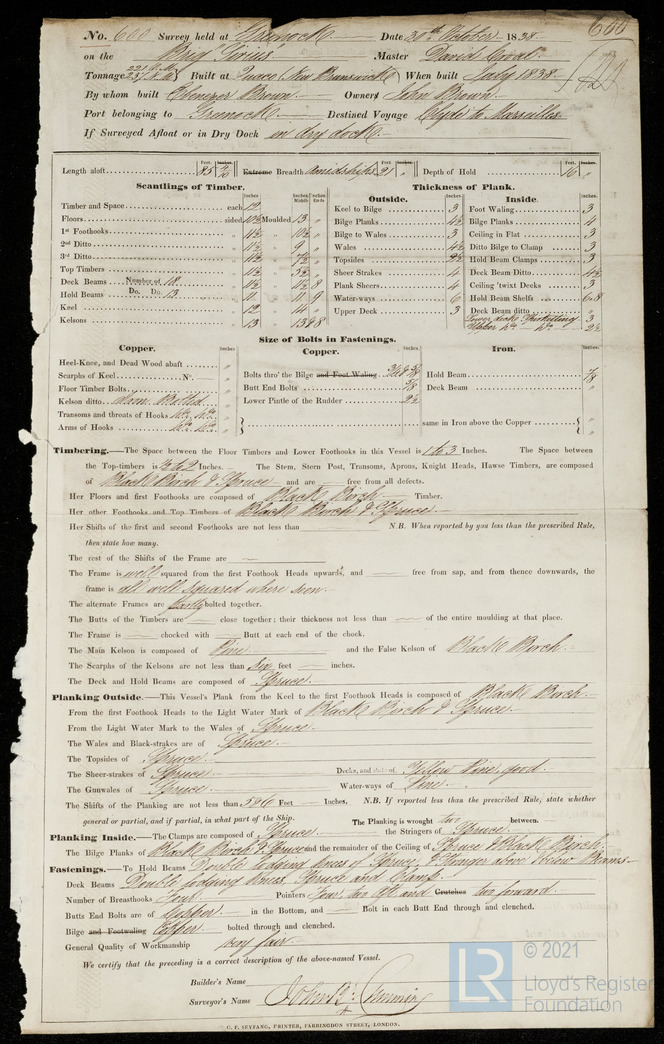 No. 600 Survey held at Greenock Date 30th October 1838 600
on the Brig "Sirius" Master David
Tonnage Built at (New Brunswick) When built July 1838
By whom built Ebenezer Brown Owners John Brown
Port belonging to Greenock Destined Voyage Clyde to Marseilles
If Surveyed Afloat or in Dry Dock in dry dock
Length aloft 85 Extreme Breadth Amidships 21 Depth of Hold 16
Scantlings of Timber. Thickness of Plank.
Outside. Inside.
Timber and Space each 12 Keel to Bilge 3 Foot Waling 3
Floors sided 10½ Moulded 13 Bilge Planks 4½ Bilge Planks 4
1st Foothooks Bilge to Wales 3 Ceiling in Flat 3
2nd Ditto 9 Wales 4½ Ditto Bilge to Clamp 3
3rd Ditto Topsides Hold Beam Clamps 3
Top Timbers Sheer Strakes 4 Deck Beam Ditto 4½
Deck Beams Number of 18 Plank Sheers 4 Ceiling 'twixt Decks 3
Hold Beams Do. Do. 13 11 11 9 Water-ways 6 Hold Beam Shelfs 6.8
Keel 12 14 Upper Deck 3 Deck Beam ditto
Kelsons 13 Lower deck 3
Size of Bolts in Fastenings.
Copper. Copper. Iron.
Heel-Knee, and Dead Wood abaft
Scarphs of Keel No. Bolts thro' the Bilge and Foot Waling Hold Beam 7/8
Floor Timber Bolts Butt End Bolts 5/8 Deck Beam
Kelson ditto Lower Pintle of the Rudder 2½
Transoms and throats of Hooks
Arms of Hooks same in Iron above the Copper
Timbering.—The Space between the Floor Timbers and Lower Foothooks in this Vessel is 1 to 3 Inches. The Space between
the Top-timbers is ½ to 2 Inches. The Stem, Stern Post, Transoms, Aprons, Knight Heads, Hawse Timbers, are composed
of Black Birch & Spruce and are free from all defects.
Her Floors and first Foothooks are composed of Black Birch Timber.
Her other Foothooks and Top Timbers of Black Birch & Spruce
Her Shifts of the first and second Foothooks are not less than N.B. When reported by you less than the prescribed Rule,
then state how many.
The rest of the Shifts of the Frame are
The Frame is well squared from the first Foothook Heads upwards, and free from sap, and from thence downwards, the
frame is all well squared where seen
The alternate Frames are partly bolted together.
The Butts of the Timbers are close together; their thickness not less than of the entire moulding at that place.
The Frame is chocked with Butt at each end of the chock.
The Main Kelson is composed of Pine and the False Kelson of Black Birch
The Scarphs of the Kelsons are not less than Six feet inches.
The Deck and Hold Beams are composed of Spruce
Planking Outside.—This Vessel's Plank from the Keel to the first Foothook Heads is composed of Black Birch
From the first Foothook Heads to the Light Water Mark of Black Birch & Spruce
From the Light Water Mark to the Wales of Spruce
The Wales and Black-strakes are of Spruce
The Topsides of Spruce
The Sheer-strakes of Spruce Decks, and state of Yellow Pine, good
The Gunwales of Spruce Water-ways of Pine
The Shifts of the Planking are not less than 5 & 6 Feet Inches. N.B. If reported less than the prescribed Rule, state whether
general or partial, and if partial, in what part of the Ship. The Planking is wrought two between.
Planking Inside.—The Clamps are composed of Spruce the Stringers of Spruce
The Bilge Planks of Black Birch & Spruce and the remainder of the Ceiling of Spruce & Black Birch
Fastenings.—To Hold Beams Double lodging knees of Spruce, & Stringer above & below Beams
Deck Beams Double lodging knees, Spruce and Clamp
Number of Breasthooks Four Pointers Four, two Aft and Crutches two forward
Butts End Bolts are of Copper in the Bottom, and Bolt in each Butt End through and clenched.
Bilge and Footwaling Copper bolted through and clenched.
General Quality of Workmanship very fair
We certify that the preceding is a correct description of the above-named Vessel.
Builder's Name
Surveyor's Name
C. F. SEYFANG, PRINTER, FARRINGDON STREET, LONDON.
LR © 2021
Lloyd's Register
Foundation